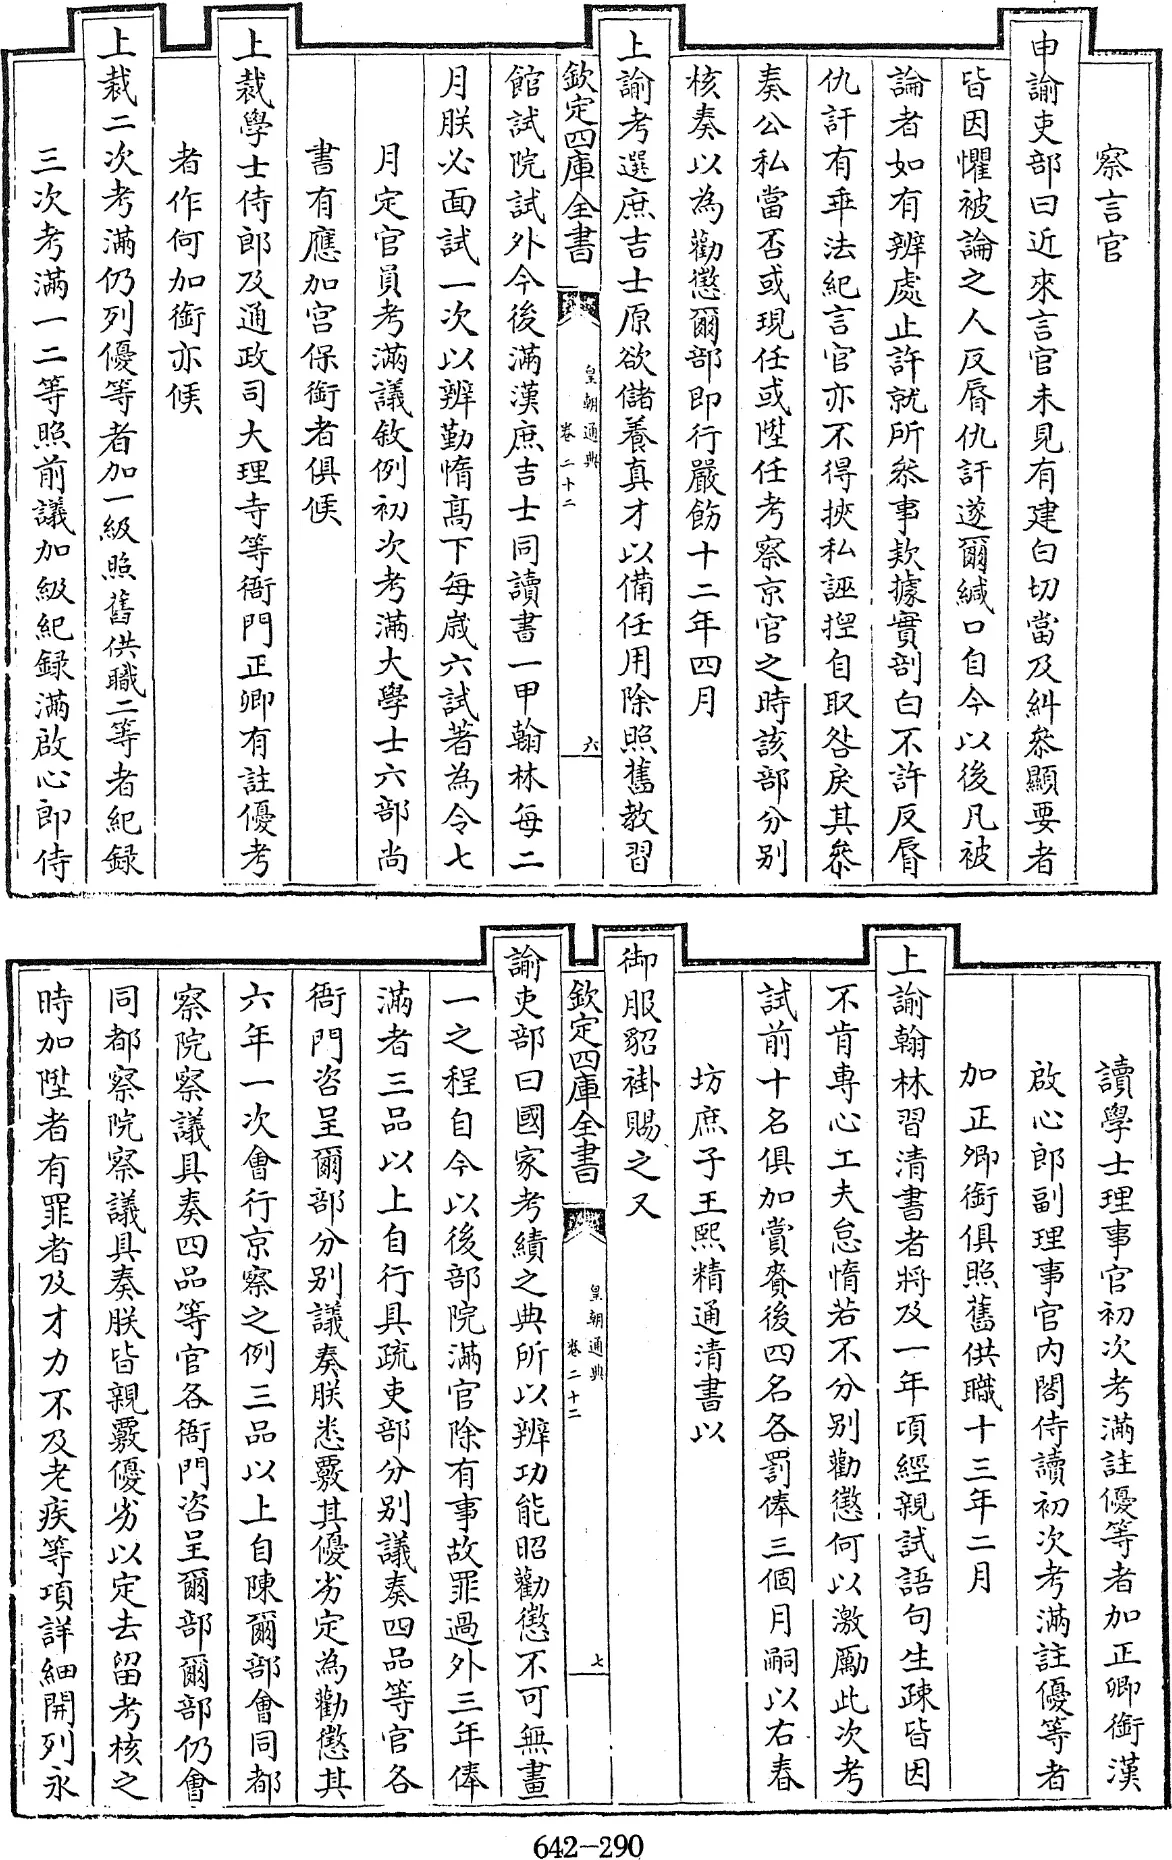 察言官
申諭吏部曰近來言官未見有建白切當及糾叅顯要者
皆因懼被論之人反脣仇訐遂爾緘口自今以後凡被
論者如有辨處止許就所叅事欵據實剖白不許反脣
仇訐有乖法紀言官亦不得挾私誣揑自取咎戾其叅
奏公私當否或現任或陞任考察京官之時該部分别
核奏以為勸懲爾部即行嚴飭十二年四月
上諭考選庶吉士原欲儲養真才以備任用除照舊教習
欽定四庫全書
皇朝通典
卷二十二
六
館試院試外今後滿漢庶吉士同讀書一甲翰林每二
月朕必面試一次以辨勤惰髙下每歳六試著為令七
月定官員考滿議敘例初次考滿大學士六部尚
書有應加宫保銜者俱候
上裁學士侍郎及通政司大理寺等衙門正卿有註優考
者作何加銜亦候
上裁二次考滿仍列優等者加一級照舊供職二等者紀録
三次考滿一二等照前議加級紀録滿啟心郎侍
讀學士理事官初次考滿註優等者加正卿銜漢
啟心郎副理事官内閣侍讀初次考滿註優等者
加正卿銜俱照舊供職十三年二月
上諭翰林習清書者將及一年頃經親試語句生疎皆因
不肯專心工夫怠惰若不分别勸懲何以激勵此次考
試前十名俱加賞賚後四名各罰俸三個月嗣以右春
坊庶子王熙精通清書以
御服貂褂賜之又
欽定四庫全書
皇朝通典
卷二十二
七
諭吏部曰國家考績之典所以辨功能昭勸懲不可無畫
一之程自今以後部院滿官除有事故罪過外三年俸
滿者三品以上自行具疏吏部分别議奏四品等官各
衙門咨呈爾部分别議奏朕悉覈其優劣定為勸懲其
六年一次會行京察之例三品以上自陳爾部會同都
察院察議具奏四品等官各衙門咨呈爾部爾部仍會
同都察院察議具奏朕皆親覈優劣以定去留考核之
時加陞者有罪者及才力不及老疾等項詳細開列永
642-290